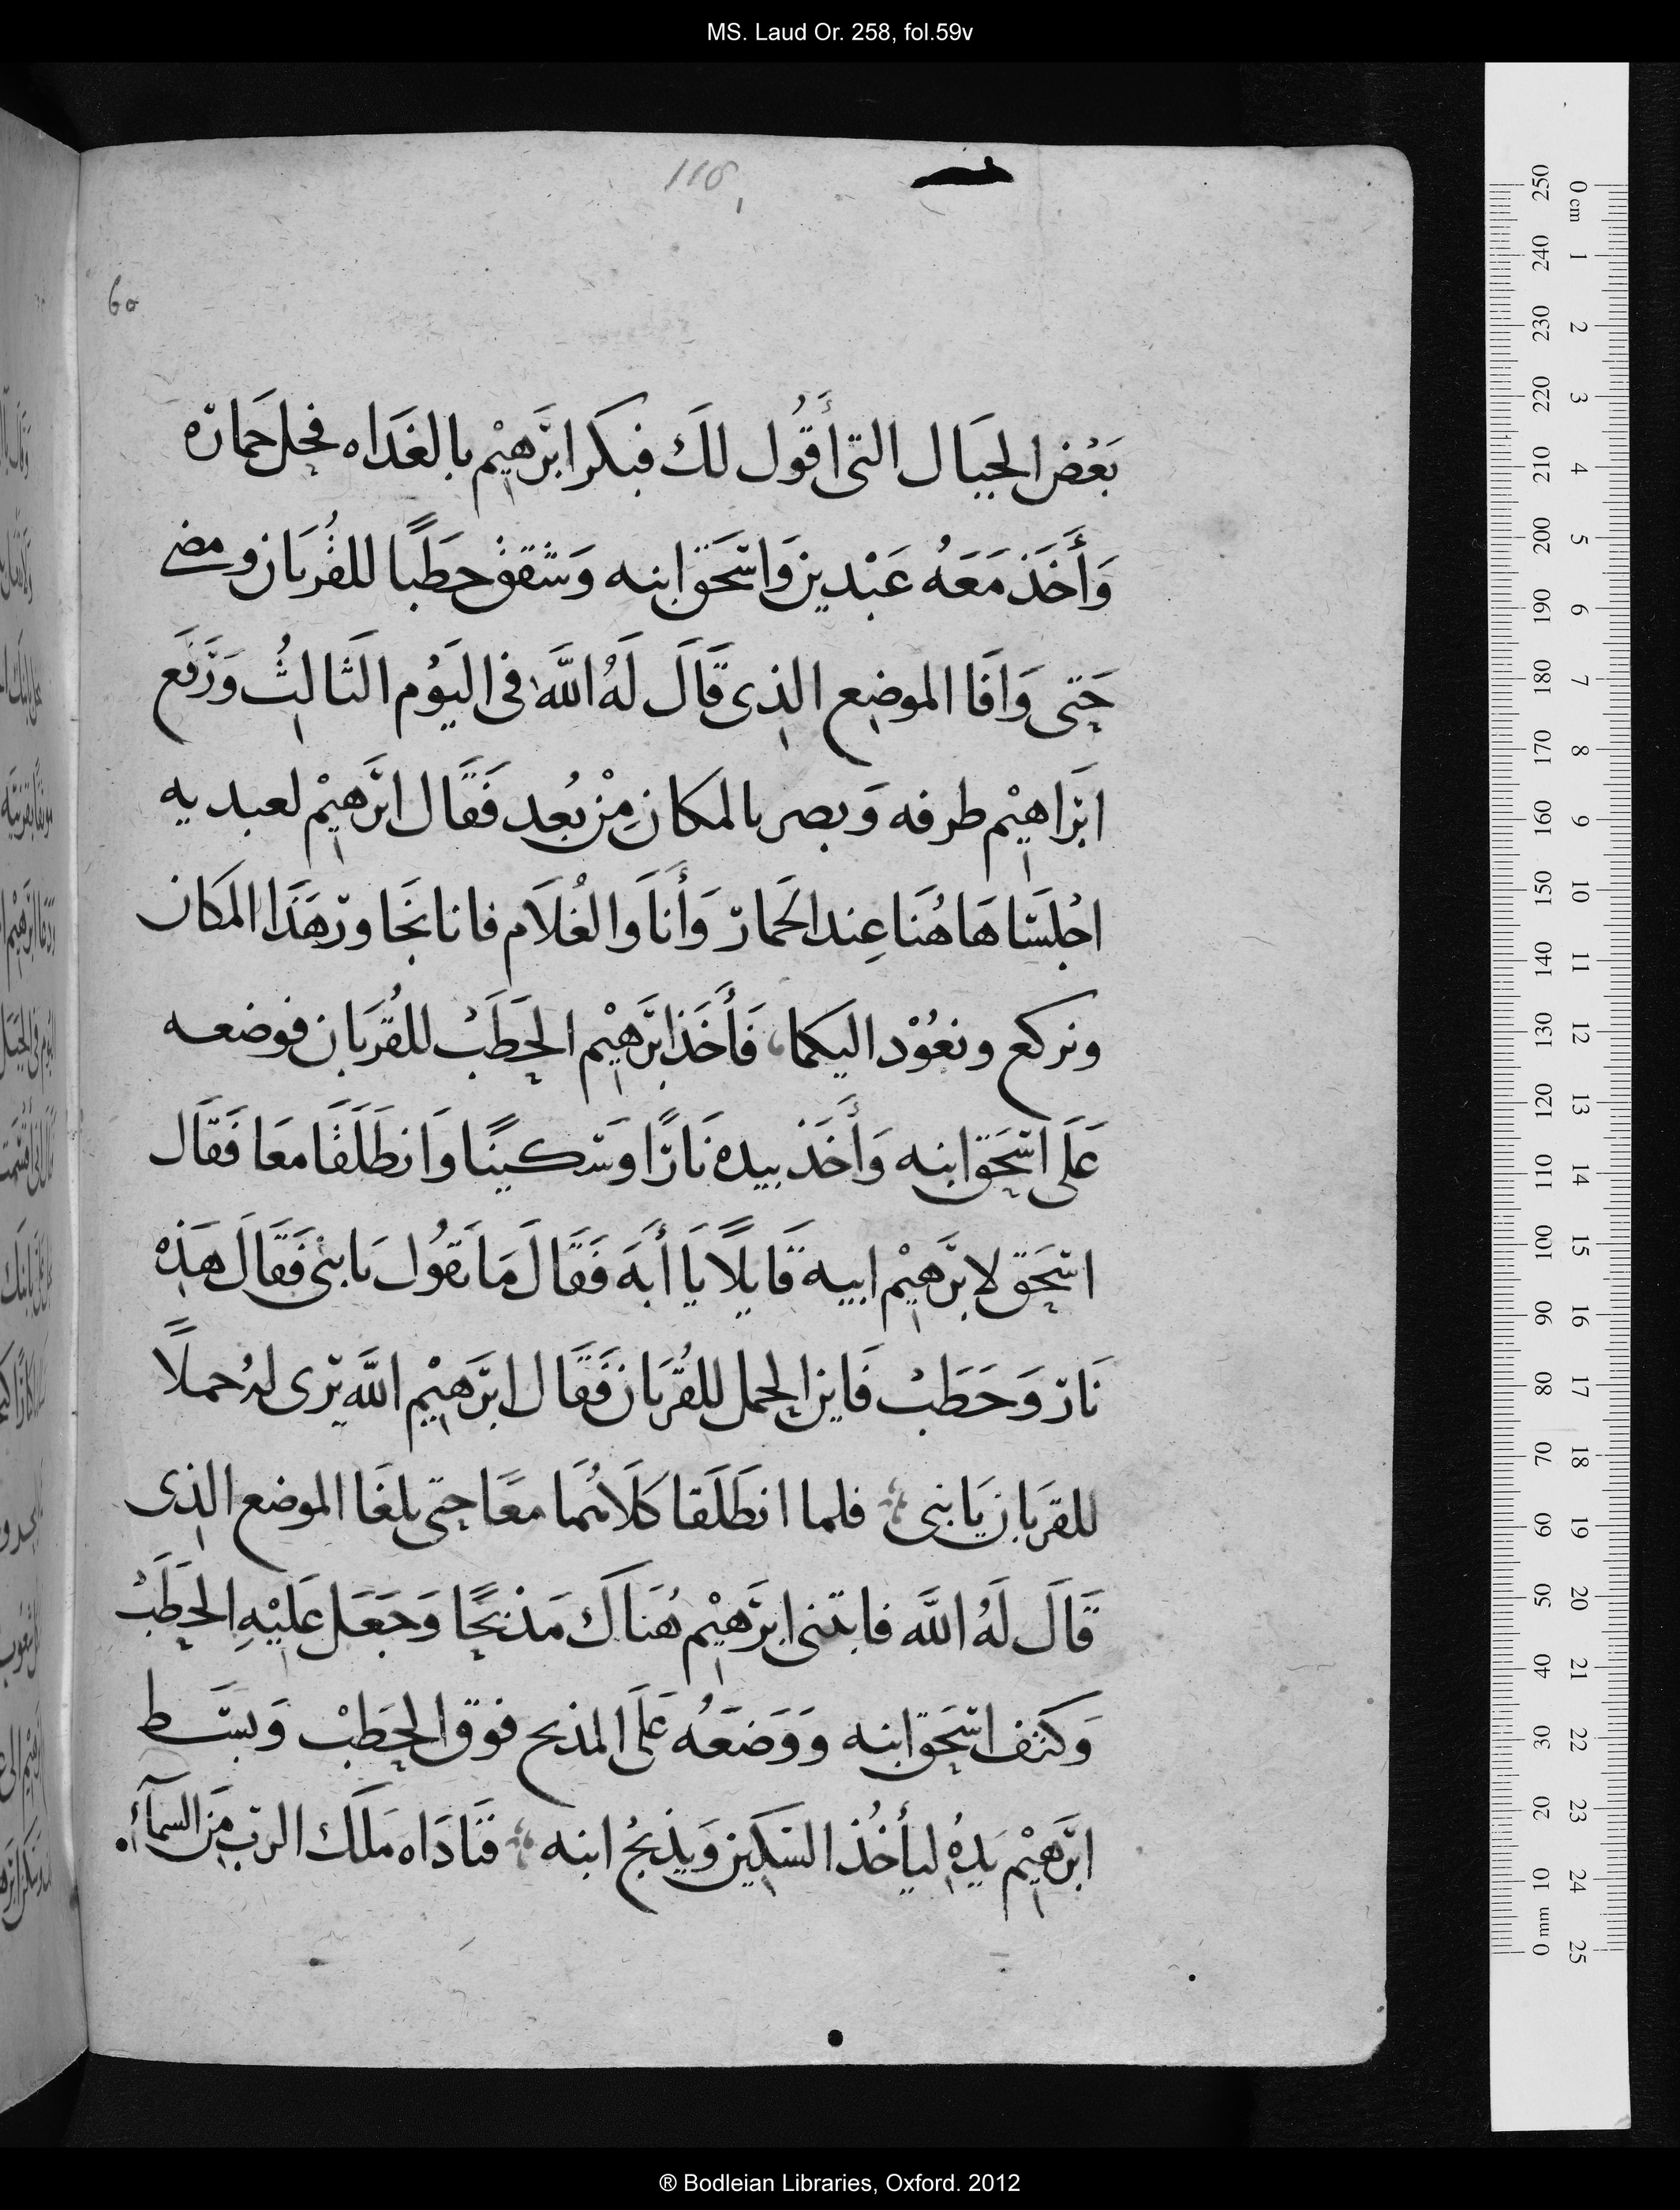 MS. Laud Or. 258, fol.59v
118
60
بَعْض الجبَال التى أَقُول لكَ فبكَر ابرَهِيْم بالغَدَاه فحمل حمَاره
وَأَخَذ مَعَهُ عَبْدين وَاسحَق ابنه وَشقق حطَبًا للقُربَان ومضى
حَتى وَافَا الموضِع الذِى قَالَ لَهُ اللَّه فى اليَوْم الثَالِثُ وَرَفَع
ابرَاهِيْم طرفه وَبصر بالمكَان مِنْ بُعِد فَقَال ابرَهِيْم لعبديه
اجْلسَا هَاهُنَا عِند الحَمار وَأَنَا وَالغُلَام فانا نجَاور هَذَا المَكان
ونركع ونعُوْد اليكما، فَأَخَذ ابرَهِيْم الحطَبْ للقُربَان فوضعه
عَلَى اسحَق ابنه وَأَخَذ بيده نَارًا وَسكينًا وَانطَلَقَا معَا فَقَال
اسحَق لابرَهِيْم ابيه قَايِلًا يَا أَبَه فَقَالَ مَا تقُول يَابنى فَقَالَ هَذِه
نَار وَحَطَبْ فَاين الحمل للقُربَان فَقَال ابرَهِيْم اللَّه يرى لهُ حملًا
للقربَان يَابنى فلما انطَلَقا كلَاهُمَا معًا حتى بلغَا الموضع الذِى
قَالَ لَهُ اللَّه فابتنى ابرَهِيْم هُنَاكَ مَذبحًا وَجَعَل عَليْهِ الحطَبْ
وَكتف اسحَق ابنه وَوَضعَهُ عَلَى المذبح فوق الحطَبْ وَبسَط
ابرَهِيْم يَدهُ ليأخُذ السَكِين وَيذبحُ ابنه فنَادَاه مَلَك الرب مِنَ السمَآء
® Bodleian Libraries, Oxford. 2012